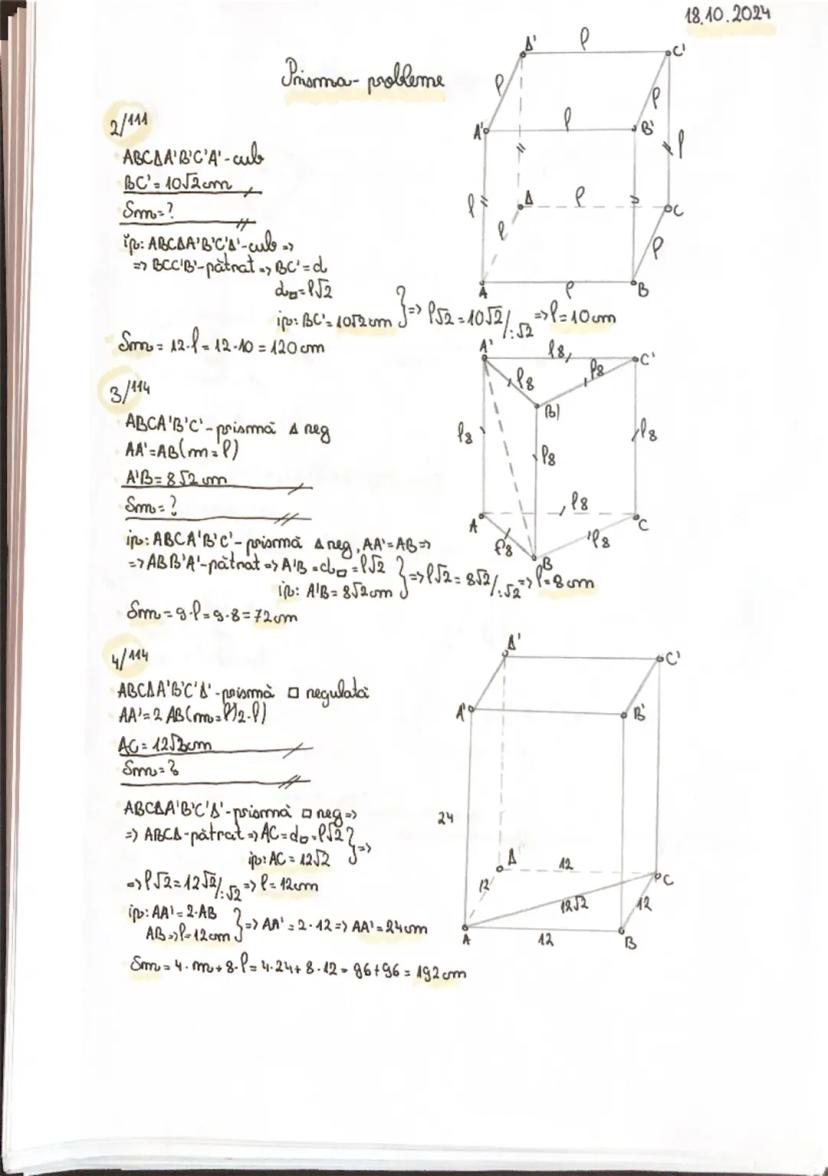 18.10.2024
Prisma - probleme
2/111
ABCΔA'B'C'A' - cub
BC' = 10√2 cm
Sm = ?
ip: ABCΔA'B'C'Δ' - cub =>
=> BCC'B' - pătrat => BC' = d
d□ = l√2
ip: BC' = 10√2 cm } => l√2 = 10√2 /:√2 => l = 10 cm
Sm = 12·l = 12·10 = 120 cm
Δ' l C'
l l
A' l B'
l l
Δ l C
l l
A l B
3/114
ABCA'B'C' - prismă Δ reg
AA' = AB (m = l)
A'B = 8√2 cm
Sm = ?
ip: ABCA'B'C' - prismă Δ reg, AA' = AB =>
=> ABB'A' - pătrat => A'B = d□ = l√2
ip: A'B = 8√2 cm } => l√2 = 8√2 /:√2 => l = 8 cm
Sm = 9·l = 9·8 = 72 cm
A' l8 C'
l8 l8
B'
l8 l8 l8
l8
A C
l8 l8
B
4/114
ABCΔA'B'C'Δ' - prismă □ regulată
AA' = 2 AB (m = 2·l)
AC = 12√2 cm
Sm = ?
ABCΔA'B'C'Δ' - prismă □ reg =>
=> ABCΔ - pătrat => AC = d□ = l√2
ip: AC = 12√2 } =>
=> l√2 = 12√2 /:√2 => l = 12 cm
ip: AA' = 2·AB
AB => l = 12 cm } => AA' = 2·12 => AA' = 24 cm
Sm = 4·m + 8·l = 4·24 + 8·12 = 96 + 96 = 192 cm
Δ' C'
A' B'
24
Δ 12 C
12 12√2 12
A 12 B